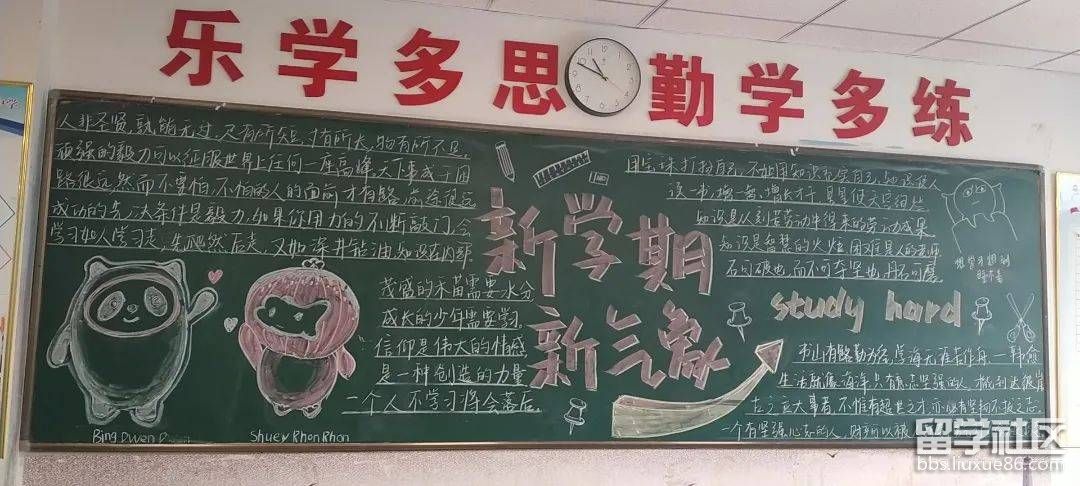 乐学多思 勤学多练
人非圣贤,孰能无过,尺有所短,寸有所长,物有所不足.
顽强的毅力可以征服世界上任何一座高峰,天下事成于困
路很远,然而不害怕,不怕的人的面前才有路,前途很远
成功的先决条件是毅力,如果你用力的不断敲门,会
学习如人学习走,先爬然后走,又如深井能油,知识在内部.
茂盛的禾苗需要水分
成长的少年需要学习.
信仰是伟大的情感
是一种创造的力量
一个人不学习将会落后.
Bing Dwen D
Shuey Rhon Rhon
新学期
新气象
用宝珠打扮自己,不如用知识充实自己,知识使人
这一书增一智,增长才干
知识是从刻苦劳动中得来的劳动成果
知识是智慧的火炬
石可破也,而不可夺坚也,丹石可磨
study hard
书山有路勤为径,学海无涯苦作舟——韩愈
生活就像海洋,只有意志坚强的人,才能到达彼岸
古之立大事者,不惟有超世之才,亦必有坚韧不拔之志.
一个有坚强心志的人,财产可以被
留学社区
bbs.liuxue86.com